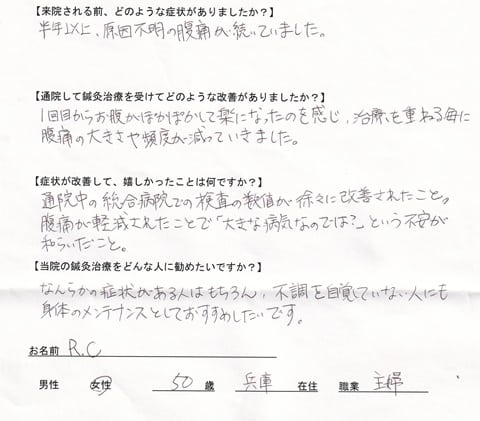 【来院される前、どのような症状がありましたか？】
半年以上、原因不明の腹痛が続いていました。
【通院して鍼灸治療を受けてどのような改善がありましたか？】
1回目からお腹がぽかぽかして楽になったのを感じ、治療を重ねる毎に
腹痛の大きさや頻度が減っていきました。
【症状が改善して、嬉しかったことは何ですか？】
通院中の総合病院での検査の数値が徐々に改善されたこと。
腹痛が軽減されたことで「大きな病気なのでは？」という不安が
和らいだこと。
【当院の鍼灸治療をどんな人に勧めたいですか？】
なんらかの症状がある人はもちろん、不調を自覚していない人にも
身体のメンテナンスとしておすすめしたいです。
お名前 R.C
男性 女性 50 歳 兵庫 在住 職業 主婦